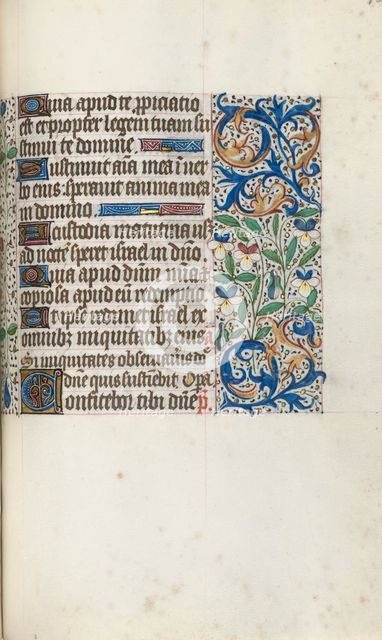 Quia apud te ppiciatio
est et propter legem tuam su
stinui te domine
Sustinuit aīa mea ī ver
bo eius: speravit anima mea
in domino
A custodia matutina usq
ad noctē speret israel in dn̄o
Quia apud dn̄m mīa z
copiosa apud eū redemptio
Et ipse redimet israel ex
omnibz iniquitatibz eius
Si iniquitates observaveris dn̄e
dn̄e quis sustinebit
Confitebor tibi dn̄e p̄.